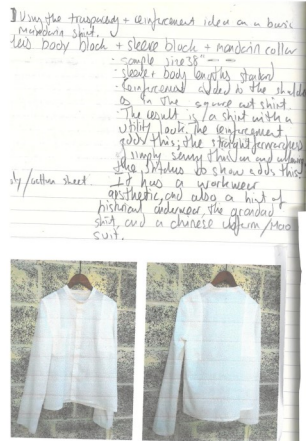 Using the trasparency + reinforcement idea on a basic
mandarin shirt.
body block + sleeve block + mandarin collar
· sample size 38"
· sleeve + body lengths standard
· Reinforcement added to the
as in the square cut shirt.
· The result is a shirt with a
utility look, the reinforcement
adds this; the straightforwardness
of simply sewing this on and
the stitches to show adds this
/cotton sheet.
It has a workwear
aesthetic, and also a hint of
historical underwear, the grandad
shirt, and a chinese uniform/Mao
suit.